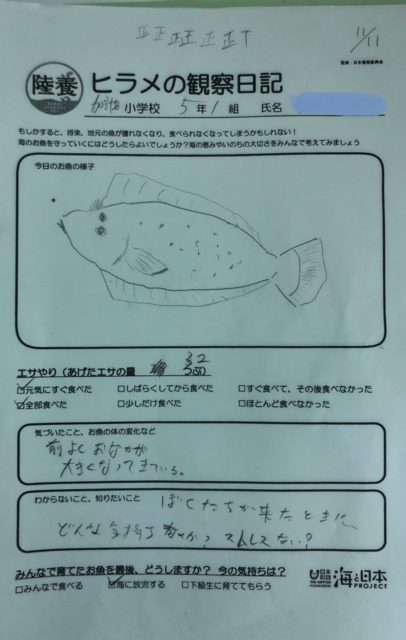 正正正正丅
11/11
監修：日本養殖振興会
陸養 ヒラメの観察日記
小学校 5年1組 氏名
もしかすると、将来、地元の魚が獲れなくなり、食べられなくなってしまうかもしれない！
海のお魚を守っていくにはどうしたらよいでしょうか？海の恵みやいのちの大切さをみんなで考えてみましょう
今日のお魚の様子
エサやり（あげたエサの量 32 つぶ）
☑元気にすぐ食べた □しばらくしてから食べた □すぐ食べて、その後食べなかった
☑全部食べた □少しだけ食べた □ほとんど食べなかった
気づいたこと、お魚の体の変化など
前よくおなかが
大きくなってきている。
わからないこと、知りたいこと ぼくたちが来たときに、
どんな気持ち ストレスない？
みんなで育てたお魚を最後、どうしますか？ 今の気持ちは？
□みんなで食べる ☑海に放流する □下級生に育ててもらう
日本財団 THE NIPPON FOUNDATION 海と日本 PROJECT